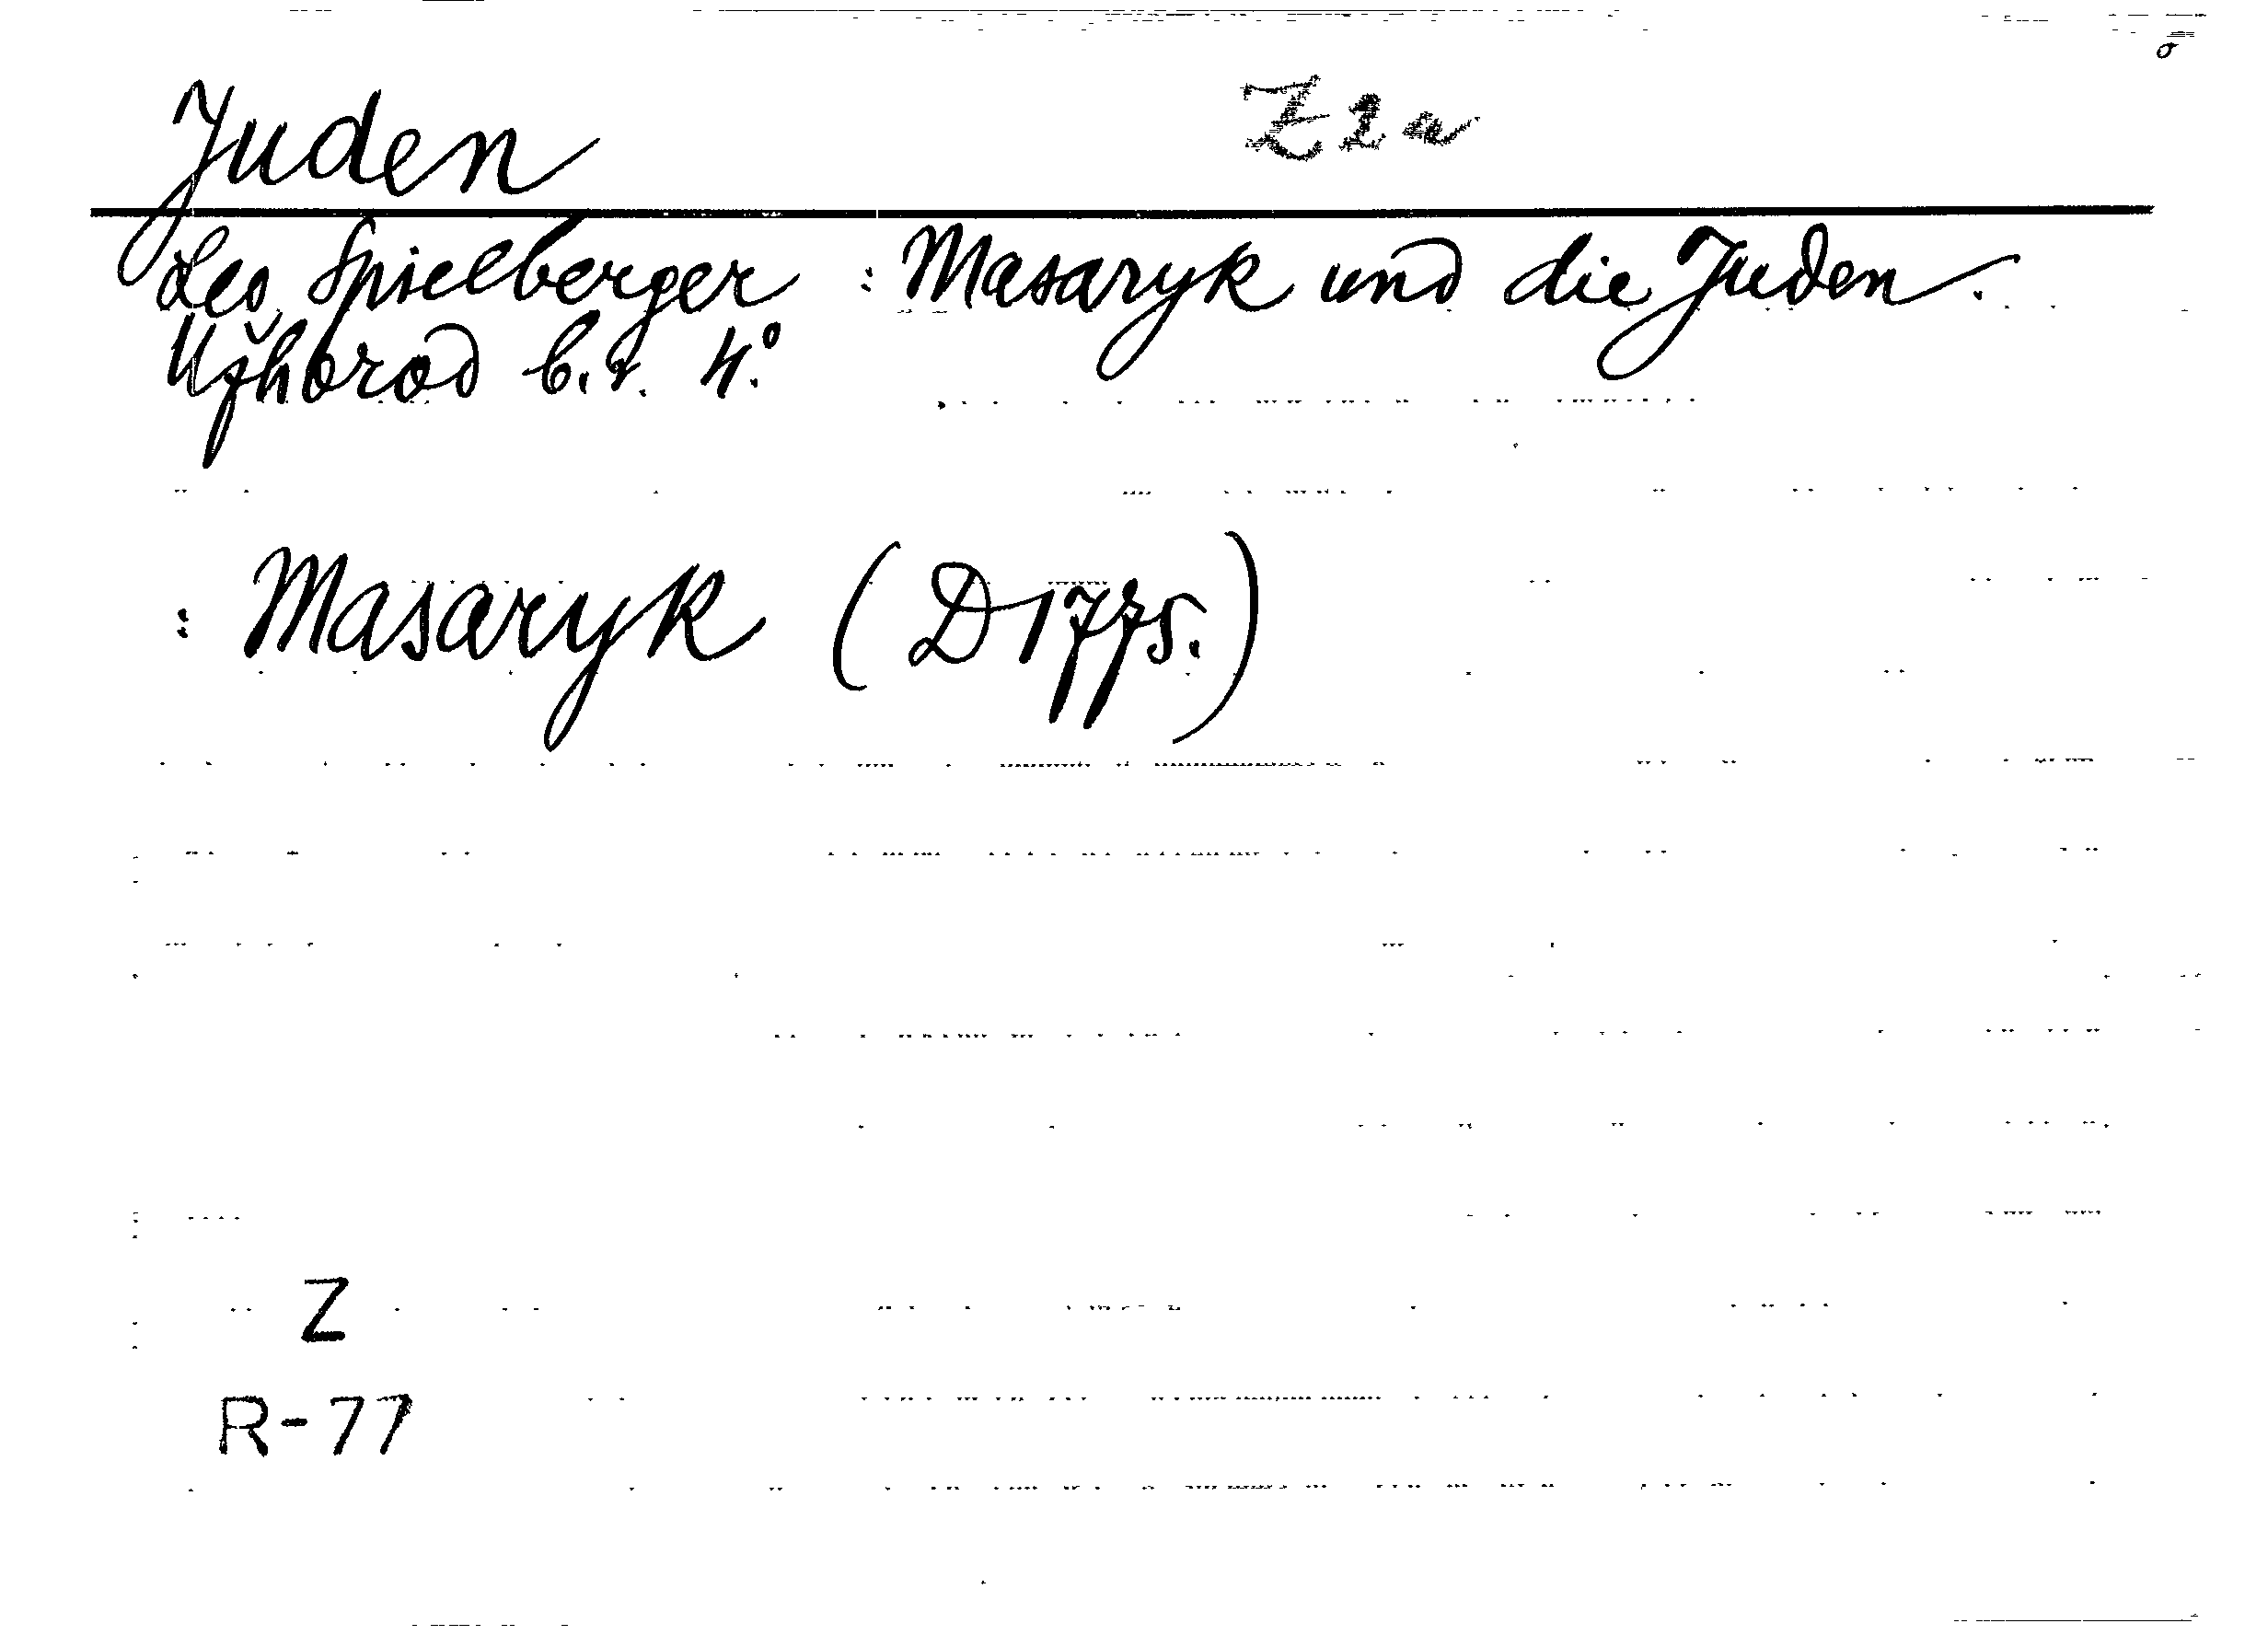 Juden Z 2 a
Leo Spielberger : Masaryk und die Juden.
Užhorod b.r. 4°.
: Masaryk (D 1775.)
Z
R-77